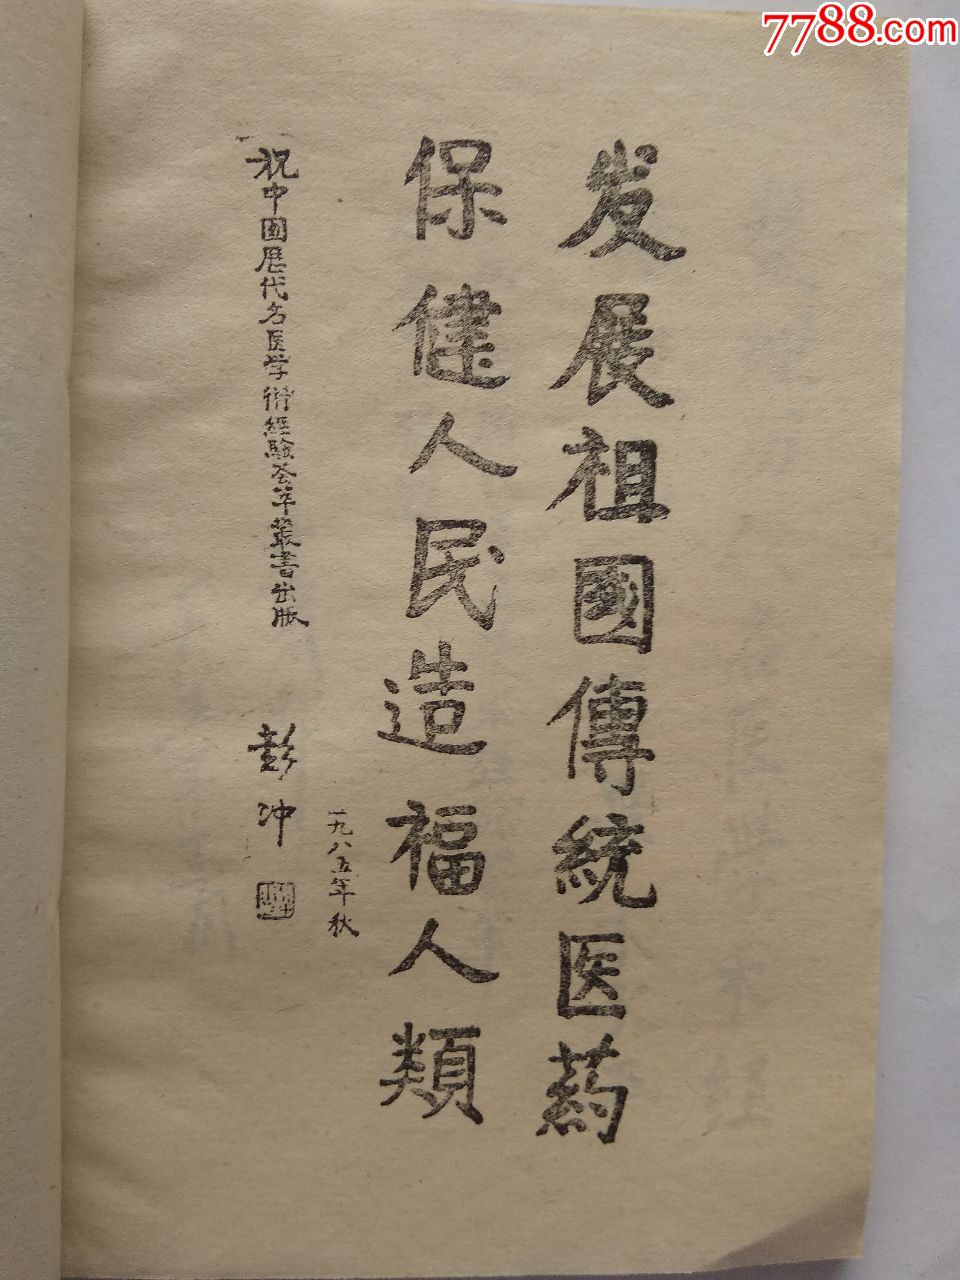 7788.com
发展祖國傳統医药
保健人民造福人類
一九八五年秋
祝中國歷代名医学術經驗荟萃叢書出版
彭冲